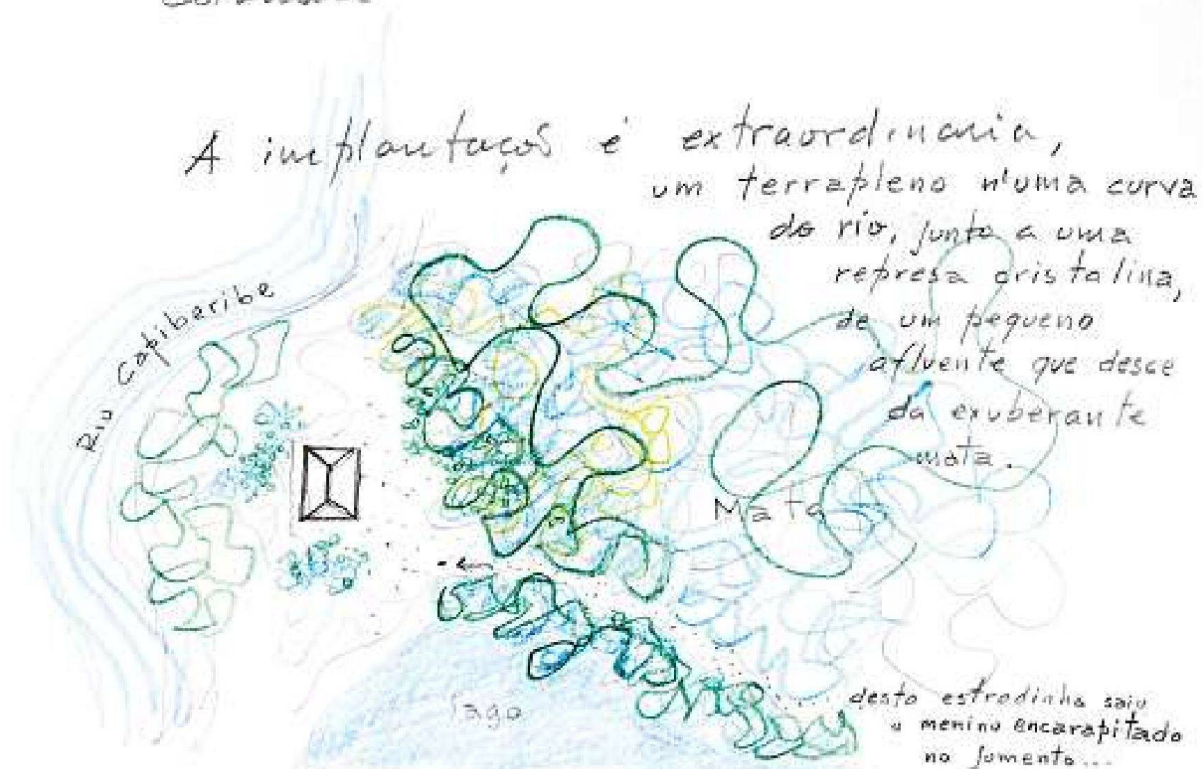 A implantação é extraordinaria,
um terrapleno n'uma curva
do rio, junto a uma
represa cristalina,
de um pequeno
afluente que desce
da exuberante
mata.
Rio Capiberibe
Mata
lago
desta estradinha saiu
o menino encarapitado
no jumento...